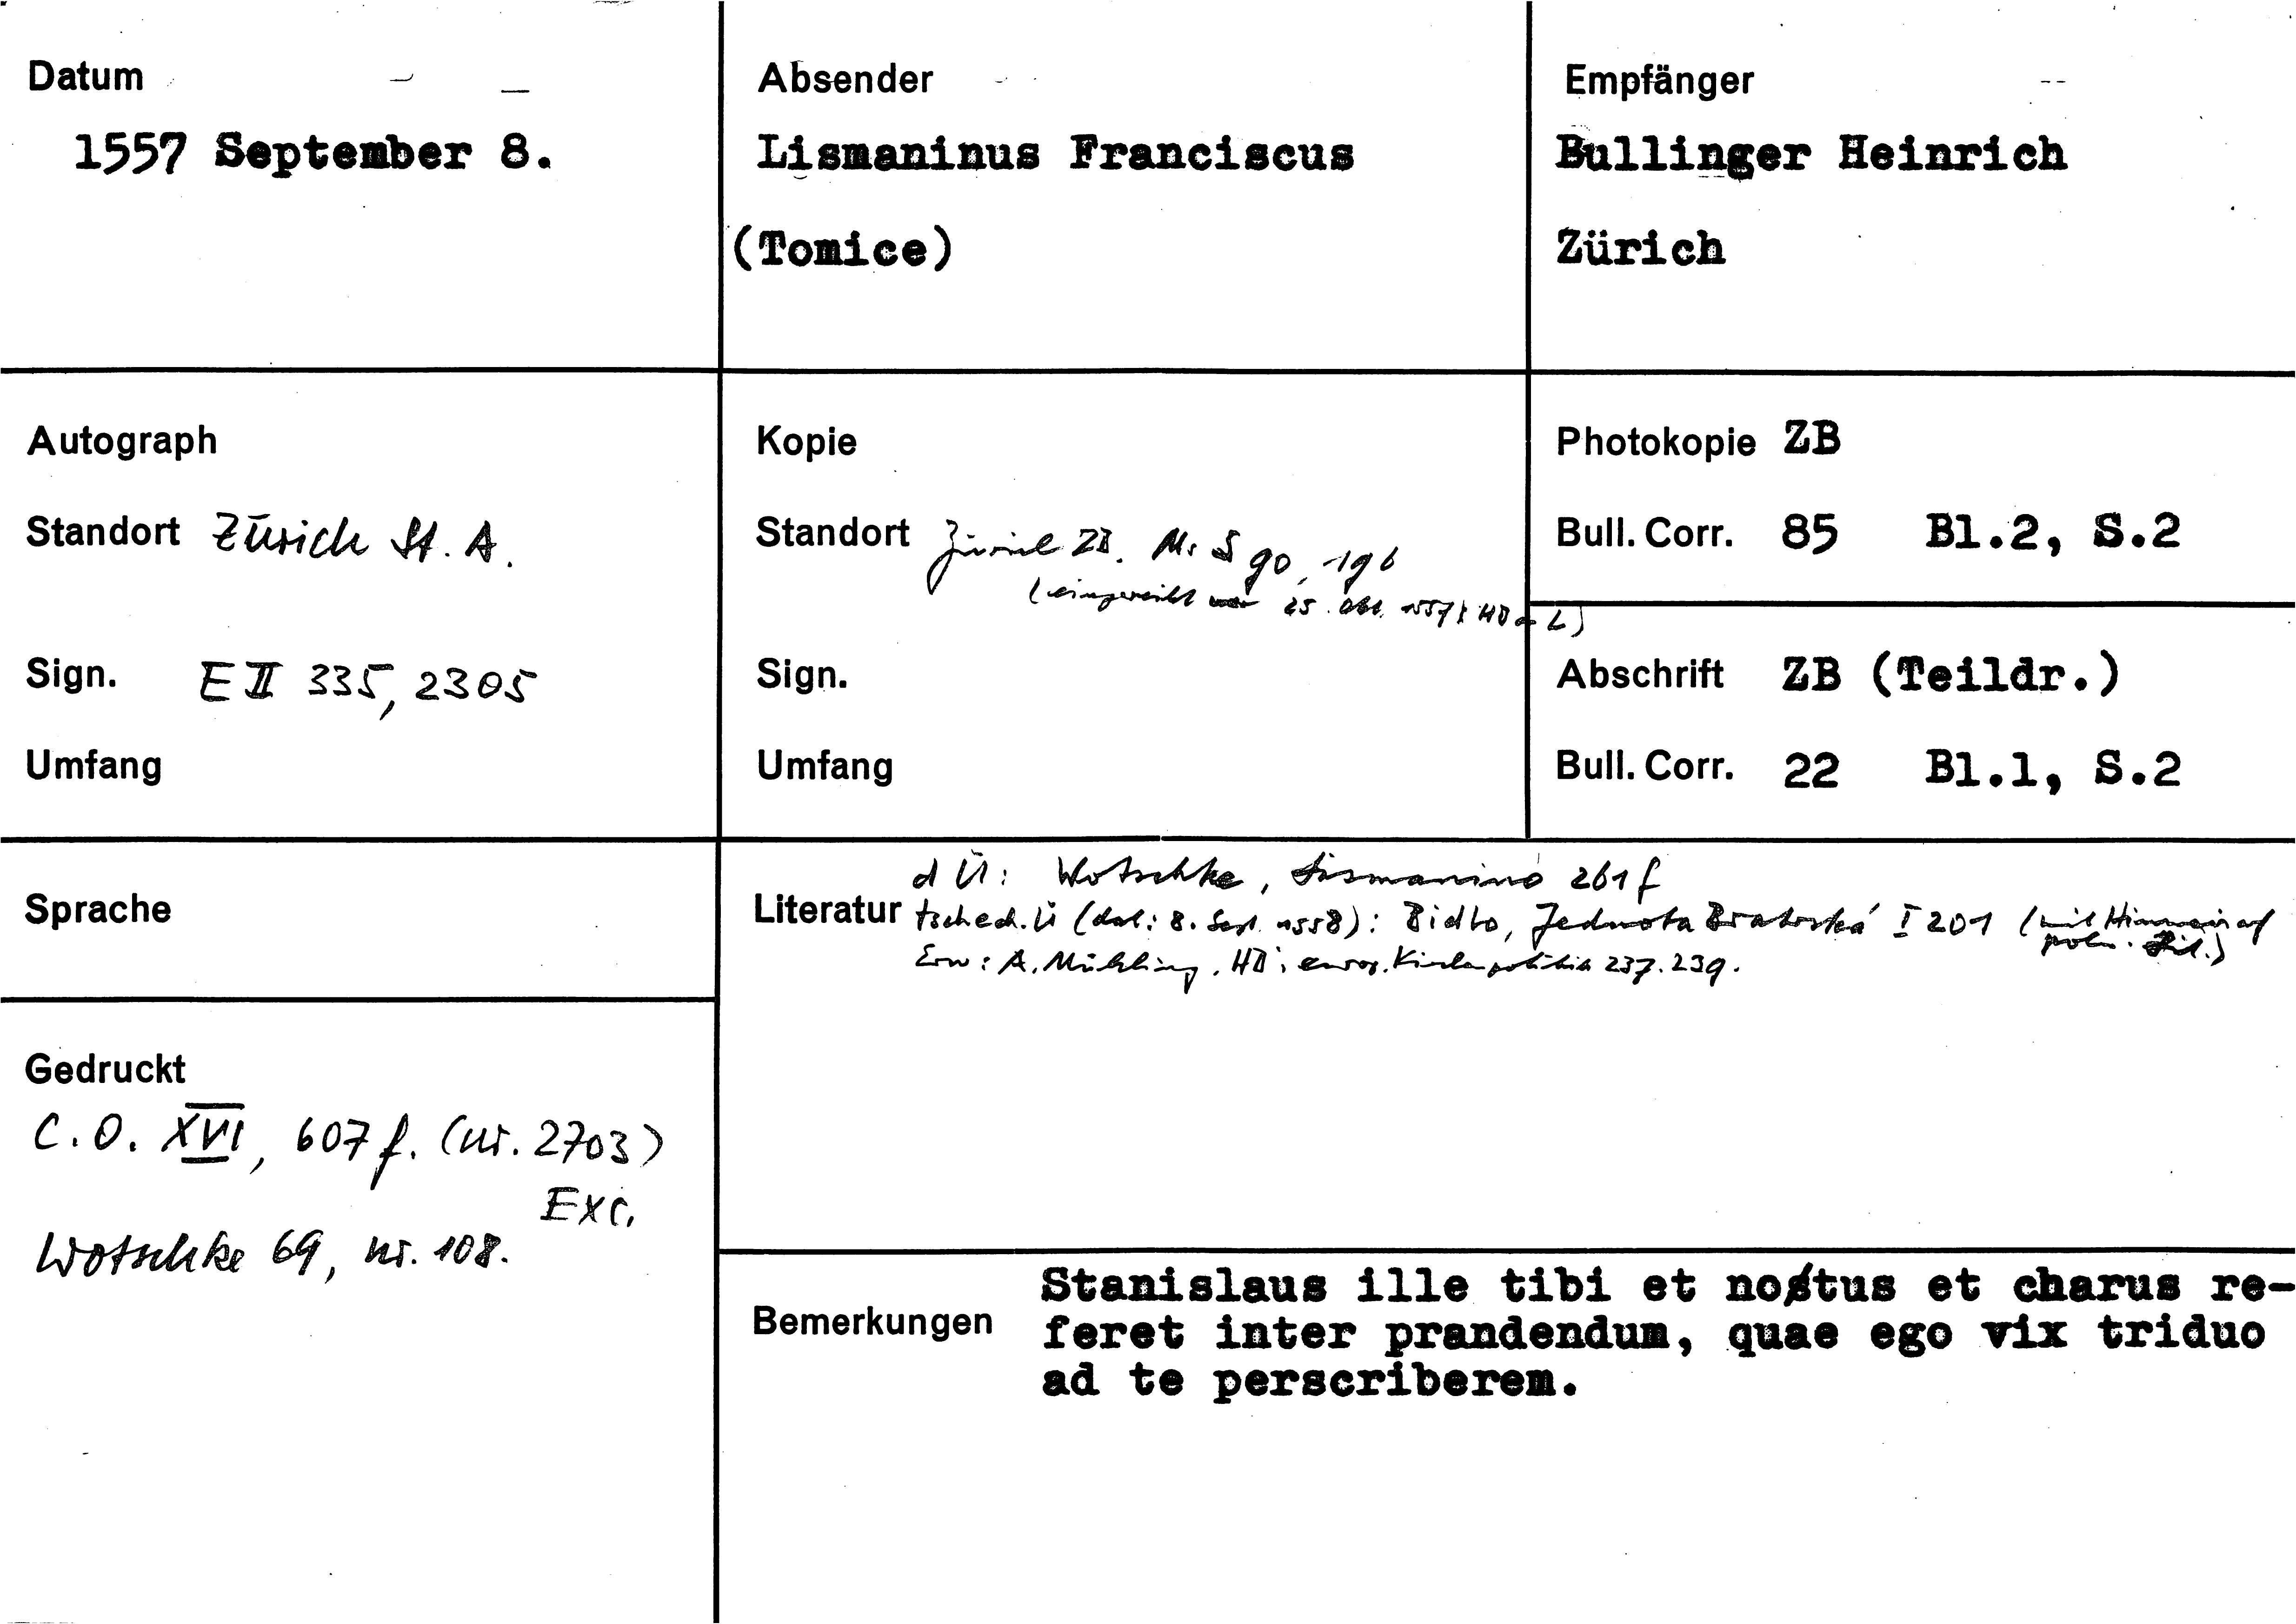 Datum
1557 September 8.
Absender
Lismaninus Franciscus
(Tomice)
Empfänger
Bullinger Heinrich
Zürich
Autograph
Standort Zürich St. A.
Sign. E II 335, 2305
Umfang
Kopie
Standort Zürich ZB. Ms S 90, 196
(eingereiht 25. Okt. 1557: HB an L)
Sign.
Umfang
Photokopie ZB
Bull. Corr. 85 Bl.2, S.2
Abschrift ZB (Teildr.)
Bull. Corr. 22 Bl.1, S.2
Sprache
Gedruckt
C. O. XVI, 607 f. (nr. 2703)
Exc.
Wotschke 69, nr. 108.
d Ü: Wotschke, Lismanino 261 f
Literatur tschech. Ü (dat: 8. Sept. 1558): Bidlo, Jednota Bratrská I 201 (mit Hinweis auf
poln. )
Erw: A. Mühling, HB's europ. Kirchenpolitik 237. 239.
Bemerkungen
Stanislaus ille tibi et nostus et charus re-
feret inter prandendum, quae ego vix triduo
ad te perscriberem.